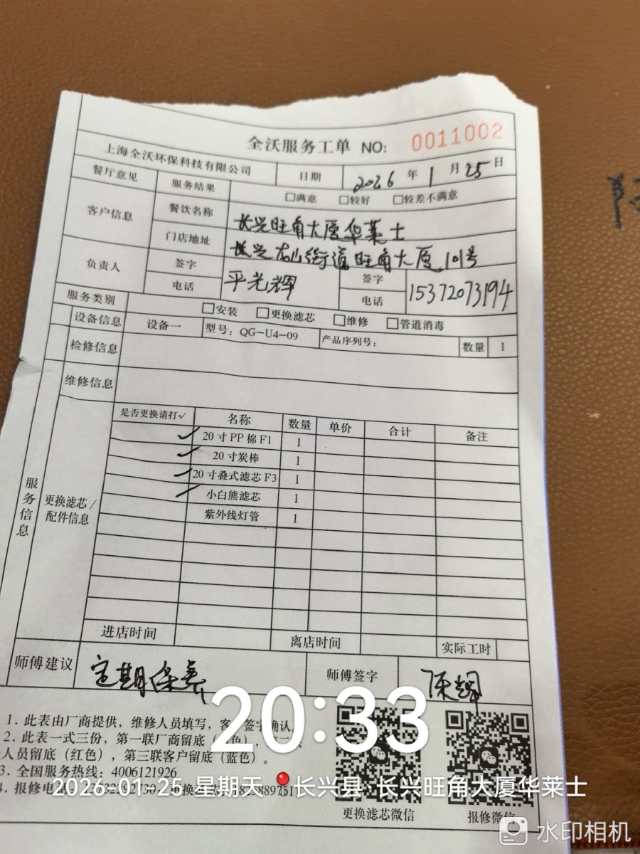 全沃服务工单 NO: 0011002
上海全沃环保科技有限公司 日期 2026 年 1 月 25 日
餐厅意见 服务结果 □满意 □较好 □较差不满意
客户信息 餐饮名称 长兴旺角大厦华莱士
门店地址 长兴龙山街道旺角大厦101号
负责人 签字 平光辉 签字
电话 电话 15372073194
服务类别 □安装 □更换滤芯 □维修 □管道消毒
设备信息 设备一 型号: QG-U4-09 产品序列号: 数量 1
检修信息
维修信息
服务信息
更换滤芯/配件信息
是否更换请打✓ 名称 数量 单价 合计 备注
✓ 20寸PP棉F1 1
✓ 20寸炭棒 1
✓ 20寸叠式滤芯F3 1
✓ 小白熊滤芯 1
紫外线灯管 1
进店时间 离店时间 实际工时
师傅建议 定期保养 师傅签字 陈辉
1. 此表由厂商提供，维修人员填写，客户签字确认
2. 此表一式三份，第一联厂商留底
人员留底（红色），第三联客户留底（蓝色）。
3. 全国服务热线: 4006121926
4. 报修电
更换滤芯微信 报修微信
20:33
2026.01.25 星期天 长兴县·长兴旺角大厦华莱士
水印相机